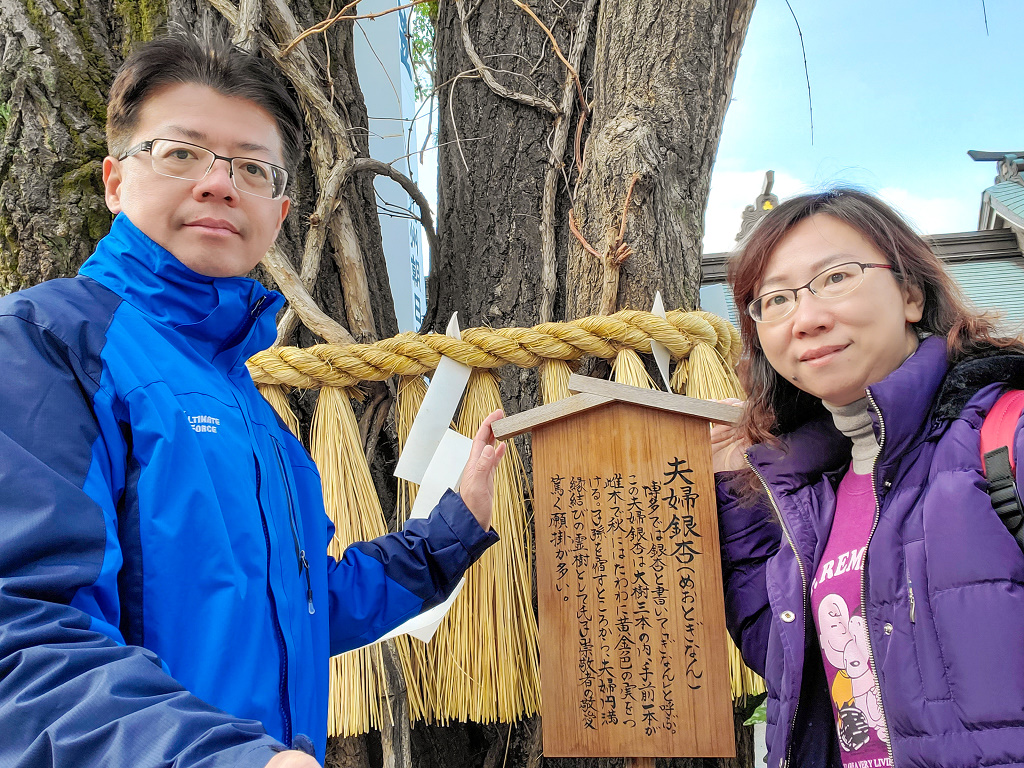 夫婦銀杏(めおとぎなん)
博多では銀杏と書いて「ぎなん」と呼ぶ。
この夫婦銀杏は大樹三本の内、手前一本が
雌木で秋にはたわわに黄金色の実をつ
ける。子孫を宿すところから、夫婦円満
縁結びの霊樹として、崇敬者の敬父
篤く願掛が多し。
ULTIMATE
FORCE